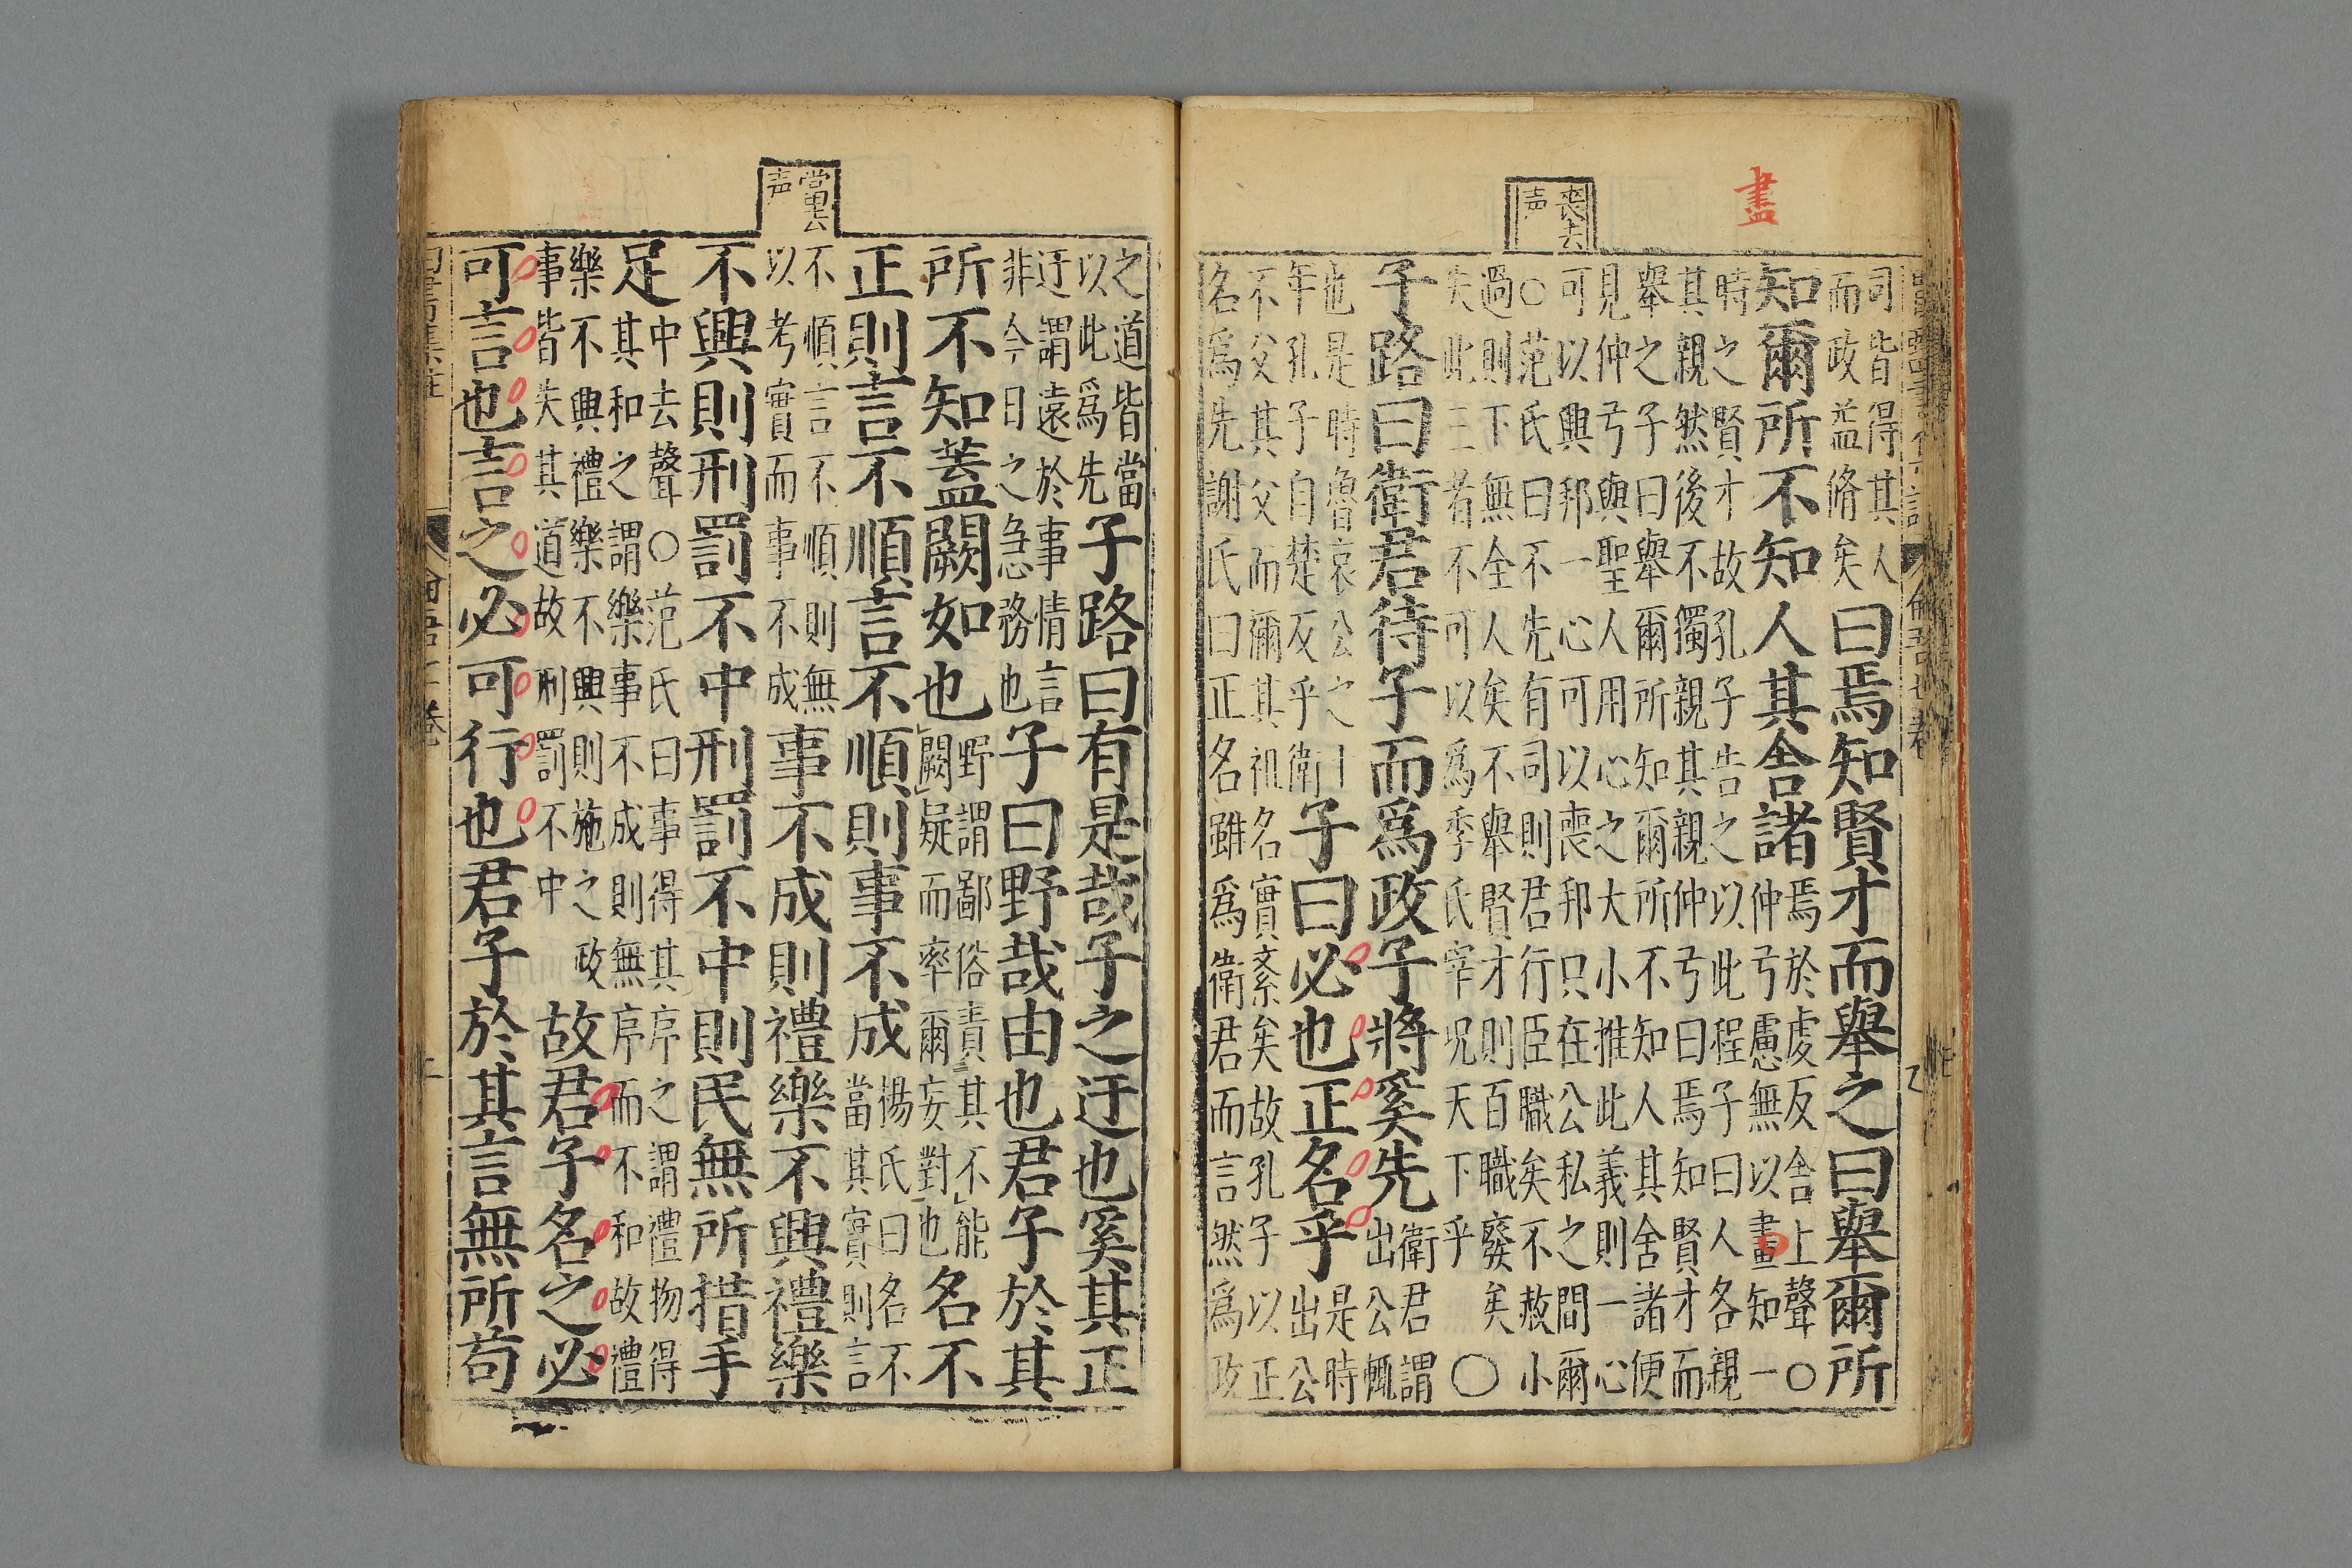 盡
喪去
声
司皆得其人
而政益脩矣
曰焉知賢才而舉之曰舉爾所
知爾所不知人其舍諸
焉於虔反舍上聲○
仲弓慮無以盡知一
時之賢才故孔子告之以此程子曰人各親
其親然後不獨親其親仲弓曰焉知賢才而
舉之子曰舉爾所知爾所不知人其舍諸便
見仲弓與聖人用心之大小推此義則一心
可以興邦一心可以喪邦只在公私之間爾
○范氏曰不先有司則君行臣職矣不赦小
過則下無全人矣不舉賢才則百職廢矣
失此三者不可以爲季氏宰況天下乎
○
子路曰衛君待子而爲政子將奚先
衛君謂
出公輒
也是時魯哀公之十
年孔子自楚反乎衛
子曰必也正名乎
是時
出公
不父其父而禰其祖名實紊矣故孔子以正
名爲先謝氏曰正名雖爲衛君而言然爲政
當去
声
之道皆當
以此爲先
子路曰有是哉子之迂也奚其正
迂謂遠於事情言
非今日之急務也
子曰野哉由也君子於其
所不知蓋闕如也
野謂鄙俗責其不能
闕疑而率爾妄對也
名不
正則言不順言不順則事不成
楊氏曰名不
當其實則言
不順言不順則無
以考實而事不成
事不成則禮樂不興禮樂
不興則刑罰不中刑罰不中則民無所措手
足
中去聲○范氏曰事得其序之謂禮物得
其和之謂樂事不成則無序而不和故禮
樂不興禮樂不興則施之政
事皆失其道故刑罰不中
故君子名之必
可言也言之必可行也君子於其言無所苟